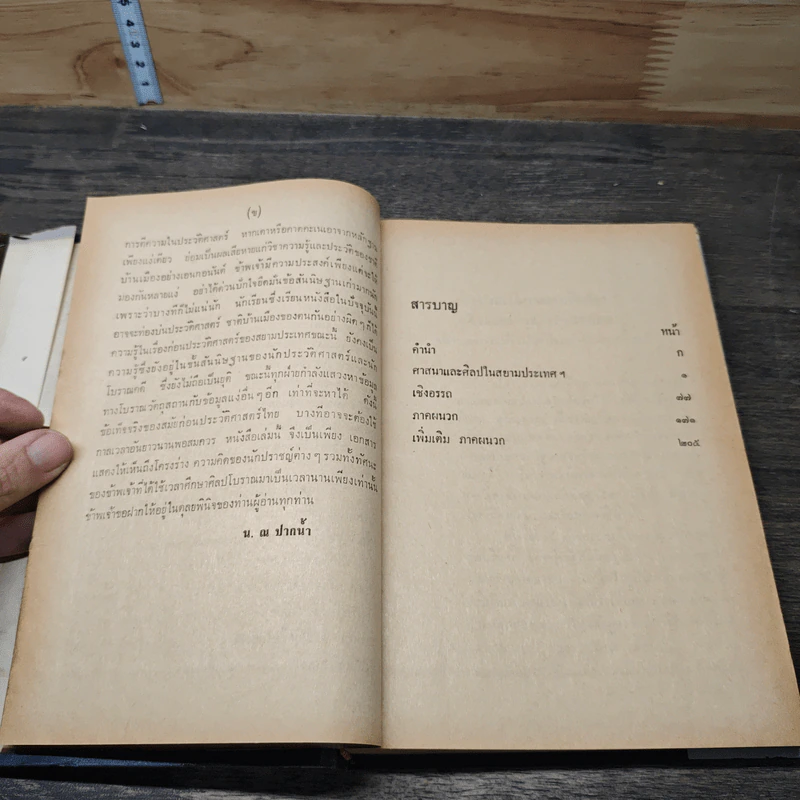 5
4
3
2
1
(ข)
การตีความในประวัติศาสตร์ หากเดาหรือคาดคะเนเอาจากหลักฐาน
เพียงแง่เดียว ย่อมเป็นผลเสียหายแก่วิชาความรู้และประวัติของชาติ
บ้านเมืองอย่างเอนกอนันต์ ข้าพเจ้ามีความประสงค์เพียงแต่จะให้
มองกันหลายแง่ อย่าได้ด่วนปักใจยึดมั่นข้อสันนิษฐานเก่ามากนัก
เพราะว่าบางทีก็ไม่แน่นัก นักเรียนซึ่งเรียนหนังสือในปัจจุบันนี้
อาจจะท่องบ่นประวัติศาสตร์ ชาติบ้านเมืองของตนกันอย่างผิดๆ ก็ได้
ความรู้ในเรื่องก่อนประวัติศาสตร์ของสยามประเทศขณะนี้ ยังคงเป็น
ความรู้ซึ่งยังอยู่ในขั้นสันนิษฐานของนักประวัติศาสตร์และนัก
โบราณคดี ซึ่งยังไม่ถือเป็นยุติ ขณะนี้ทุกฝ่ายกำลังแสวงหาข้อมูล
ทางโบราณวัตถุสถานกับข้อมูลแง่อื่นๆ อีก เท่าที่จะหาได้ ดังนั้น
ข้อเท็จจริงของสมัยก่อนประวัติศาสตร์ไทย บางทีอาจจะต้องใช้
กาลเวลาอันยาวนานพอสมควร หนังสือเล่มนี้ จึงเป็นเพียง เอกสาร
แสดงให้เห็นถึงโครงร่าง ความคิดของนักปราชญ์ต่าง ๆ รวมทั้งทัศนะ
ของข้าพเจ้าที่ได้ใช้เวลาศึกษาศิลปโบราณมาเป็นเวลานานเพียงเท่านั้น
ข้าพเจ้าขอฝากให้อยู่ในดุลยพินิจของท่านผู้อ่านทุกท่าน
น. ณ ปากน้ำ
สารบาญ
หน้า
คำนำ ก
ศาสนาและศิลปในสยามประเทศ ฯ ๑
เชิงอรรถ ๗๗
ภาคผนวก ๑๗๑
เพิ่มเติม ภาคผนวก ๒๐๕